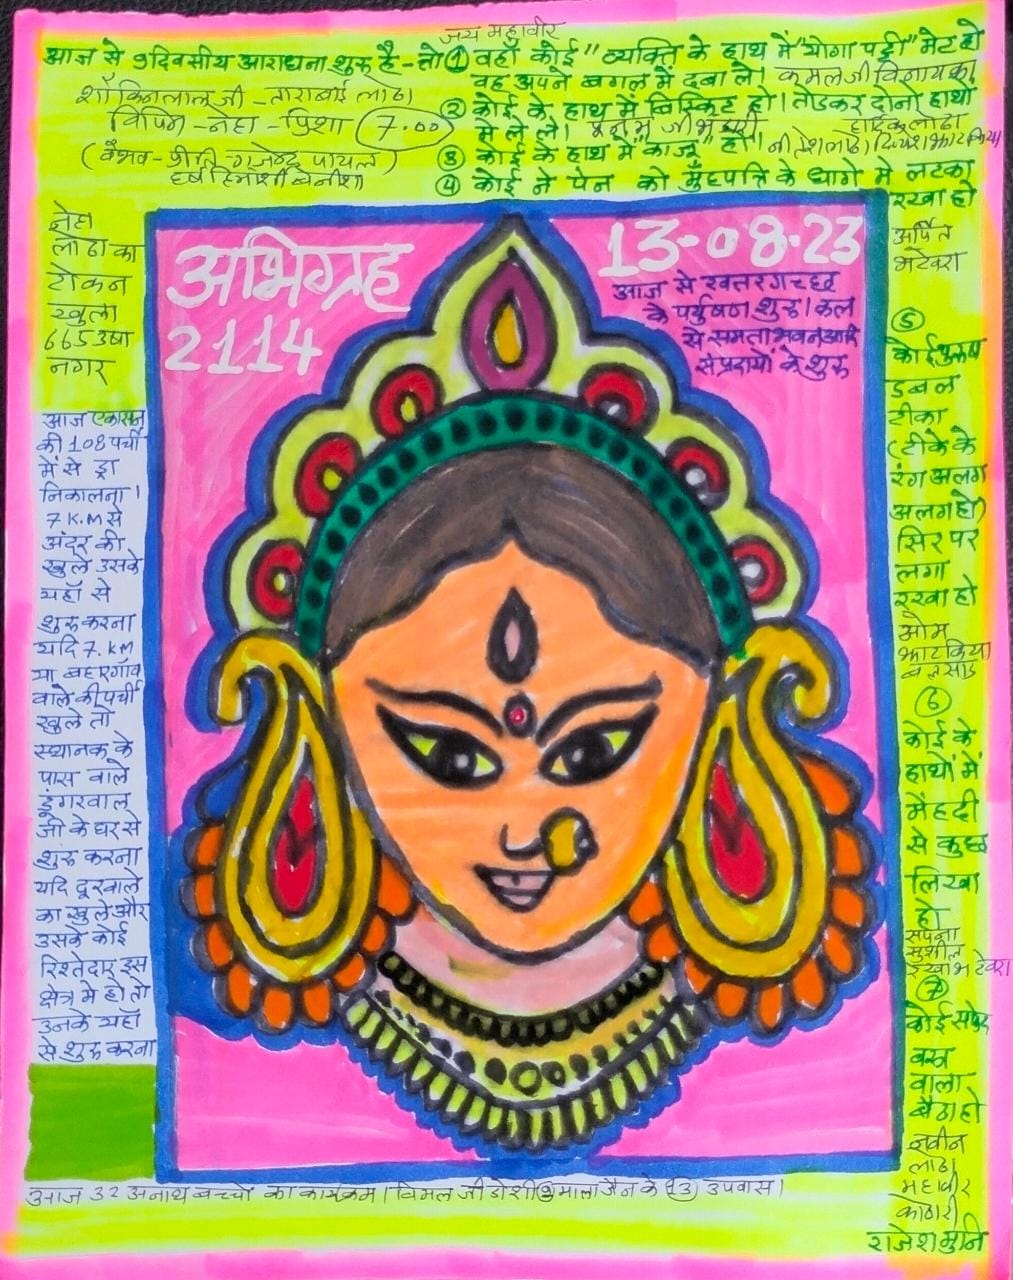 जय महावीर
आज से 9दिवसीय आराधना शुरू है-तो
शौकिनलालजी-ताराबाई लोढा
विपिन-नेहा-प्रिशा 7.00
(वैभव-प्रीति-गजेन्द्र पायल)
① वहाँ कोई" व्यक्ति के हाथ में "योगा पट्टी" मेट हो
वह अपने बगल में दबा ले। कमलजी विनायका
② कोई के हाथ में बिस्किट हो। तोडकर दोनो हाथो
में ले ले।
हार्दिक लोढा
③ कोई के हाथ में "काजू" हो।
④ कोई ने पेन को मुँहपत्ति के धागे मे लटका
रखा हो
अर्पित
भटेवरा
नेहा
लोढा का
टोकन
खुला
665 उषा
नगर
आज एकासन
की 108 पर्ची
में से ड्रा
निकालना।
7 K.M से
अंदर की
खुले उसके
यहाँ से
शुरू करना
यदि 7. KM
या बहारगाँव
वाले की पर्ची
खुले तो
स्थानक के
पास वाले
डूंगरवाल
जी के घर से
शुरू करना
यदि दूरवाले
का खुले और
उसके कोई
रिश्तेदार इस
क्षेत्र मे हो तो
उनके यहाँ
से शुरू करना
अभिग्रह
2114
13-08-23
आज से खतरगच्छ
के पर्युषण शुरू। कल
से समता भवन आदि
संप्रदायों के शुरू
⑤
कोई पुरूष
डबल
टीका
(टीके के
रंग अलग
अलग हो)
सिर पर
लगा
रखा हो
ओम
झाटकिया
बलसाड
⑥
कोई के
हाथों में
मेंहदी
से कुछ
लिखा
हो
सपना
सुशील
⑦
कोई सफेद
वस्त्र
वाला
बैठा हो
नवीन
लोढा
महावीर
कोठारी
राजेशमुनि
आज 32 अनाथ बच्चों का कार्यक्रम। विमल जी डोशी
के (13) उपवास।